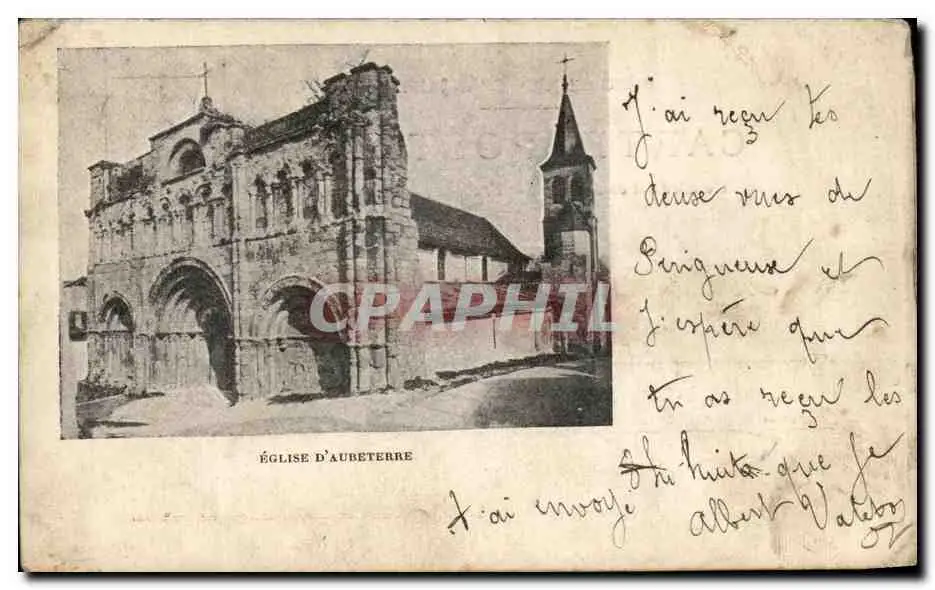 J'ai reçu tes
deux vues de
Périgueux et
J'espère que
tu as reçu les
huit que je
t'ai envoyé
Albert
CPAPHIL
ÉGLISE D'AUBETERRE